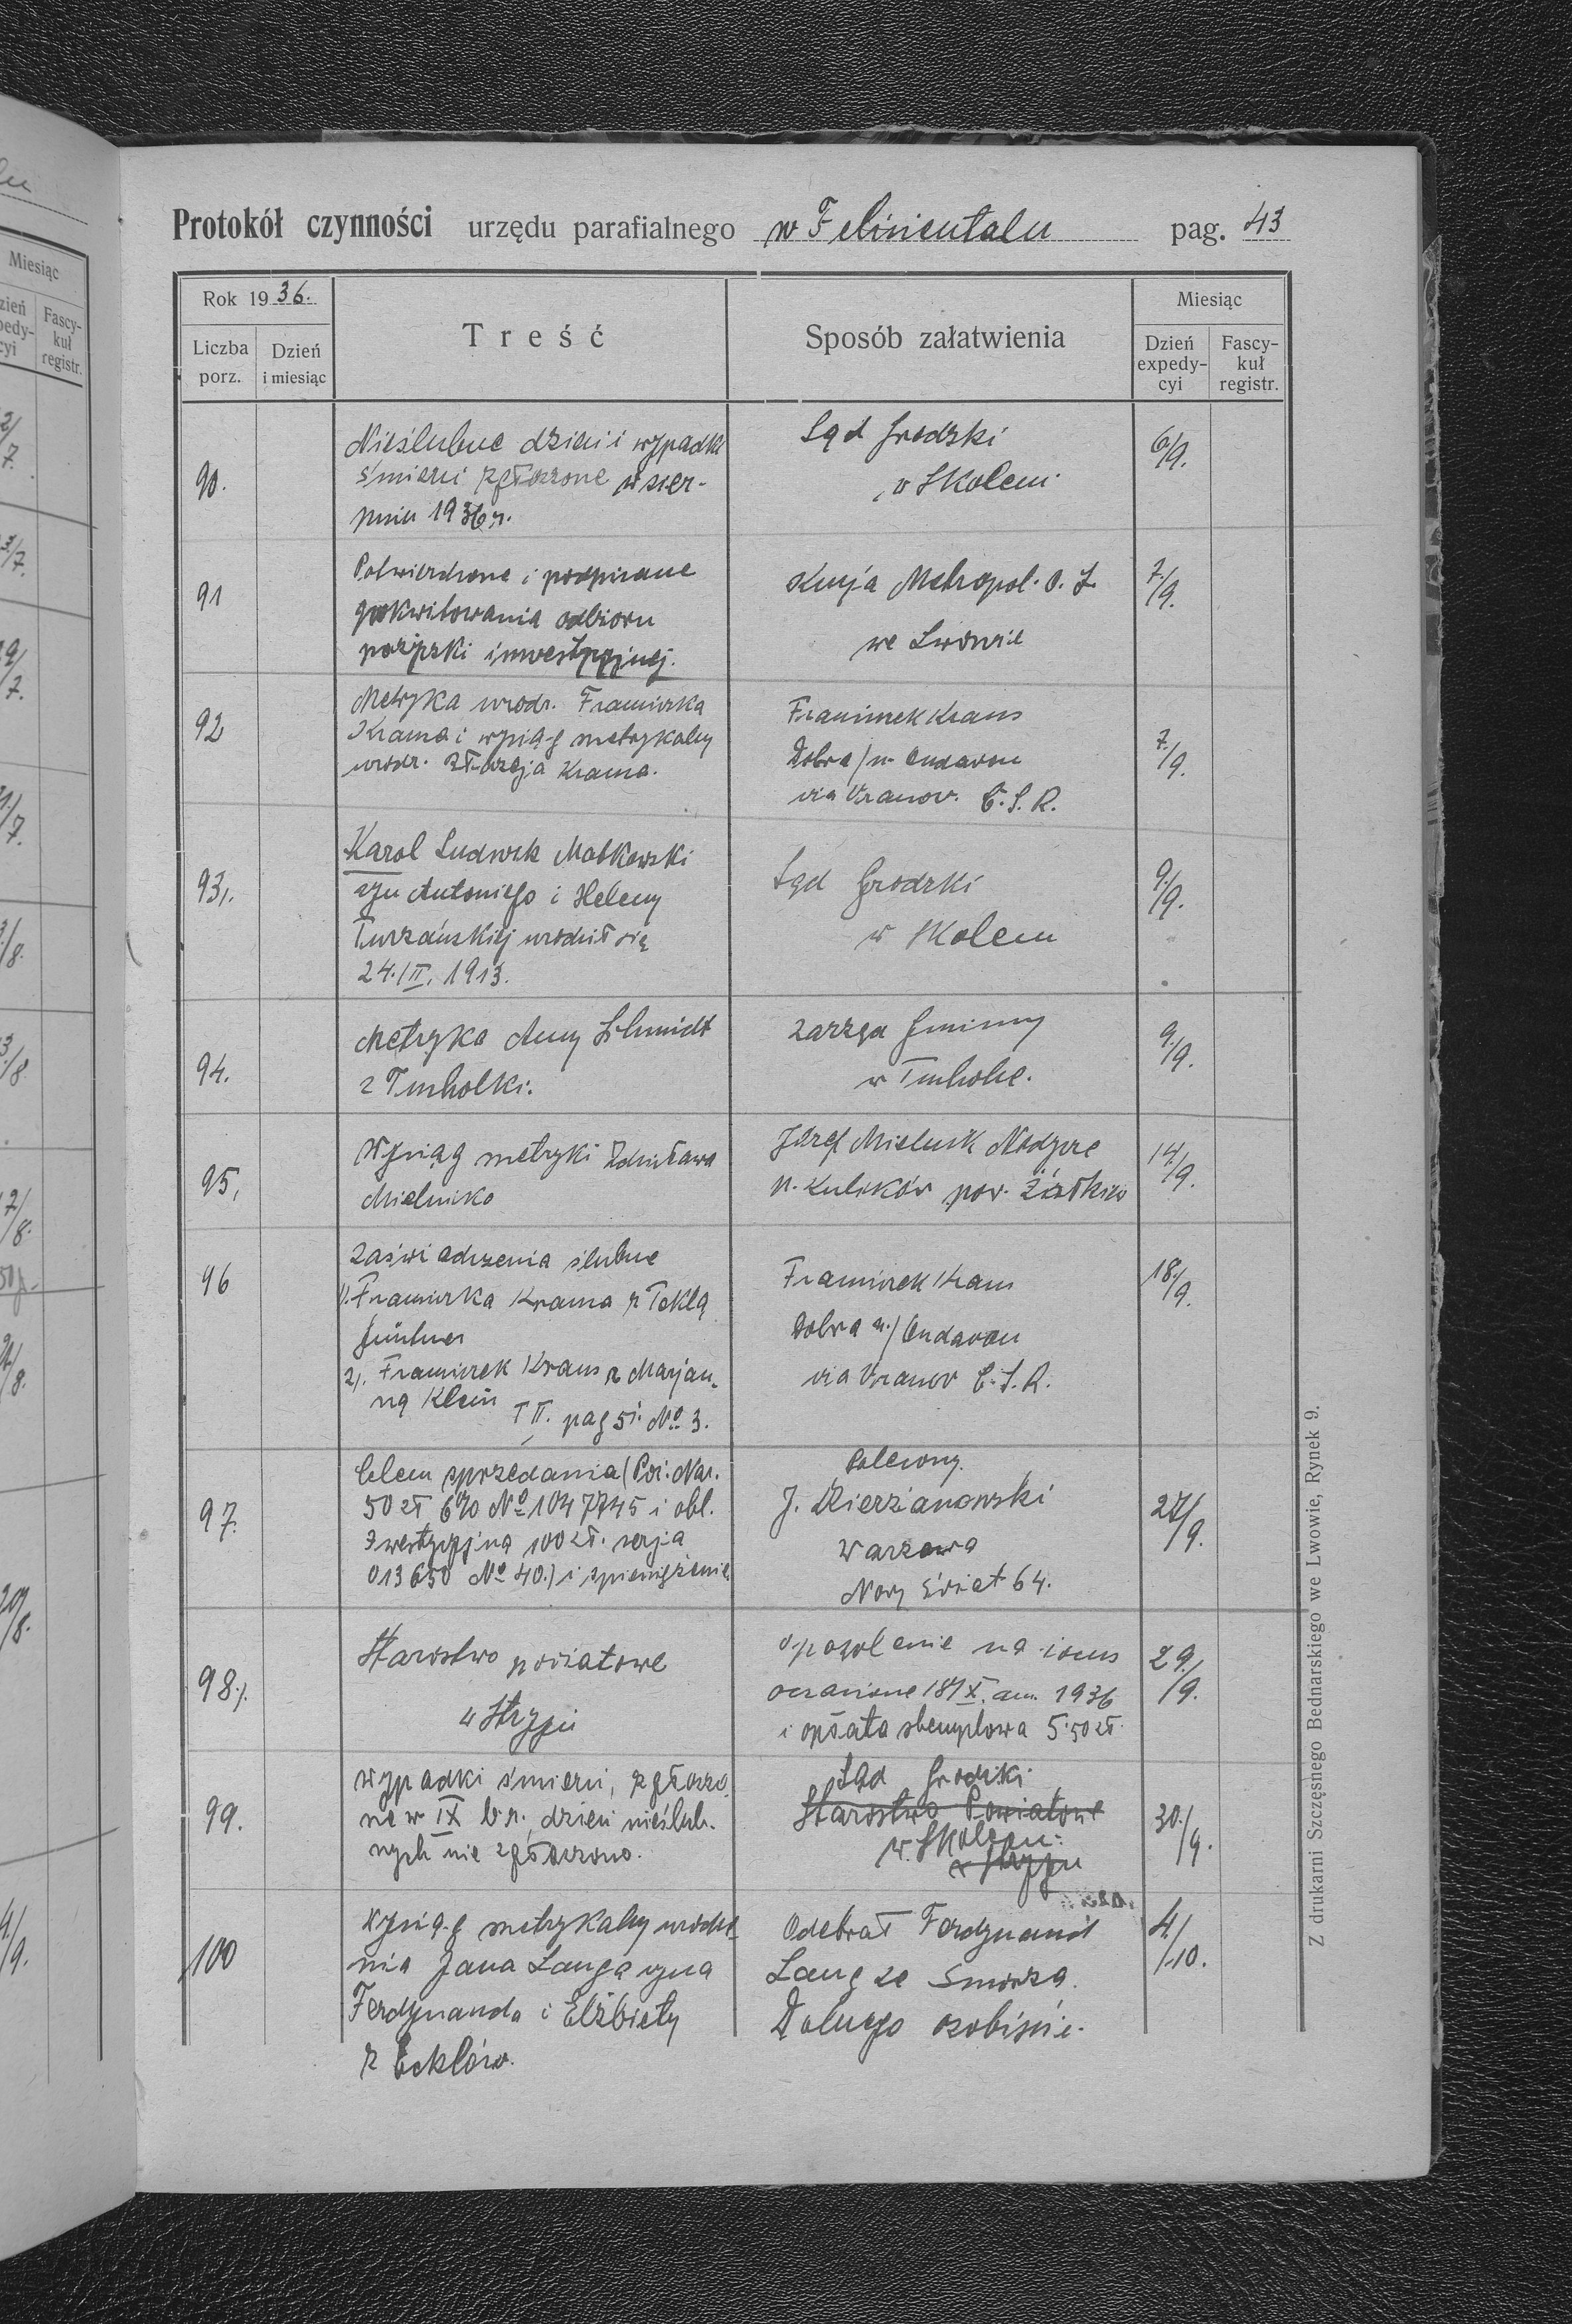 Protokół czynności urzędu parafialnego w Felizientalu pag. 43
Rok 1936.
Liczba porz.
Dzień i miesiąc
Treść
Sposób załatwienia
Miesiąc
Dzień expedycyi
Fascykuł registr.
90.
Nieślubne dzieci i wypadki
śmierci zgłoszone w sier-
pniu 1936 r.
Sąd Grodzki
w Skolem
6/9.
91
Potwierdzone i podpisane
pokwitowania odbioru
pożyczki inwestycyjnej.
Kurja Metropol. O. Ł.
we Lwowie
7/9.
92
Metryka urodz. Franciszka
Krausa i wyciąg metrykalny
urodz. Krausa.
Franciszek Kraus
Dobra / n. Ondavou
via Vranov. Č. S. R.
7/9.
93.
Karol Ludwik Matkowski
syn Antoniego i Heleny
Turzańskiej urodził się
24./II. 1913.
Sąd Grodzki
w Skolem
9/9.
94.
Metryka Anny Schmidt
z Tucholki.
Zarząd Gminny
w Tucholce.
9./9.
95.
Wyciąg metryki Zdzisława
Mielnika
Józef Mielnik
p. Kulików pow. Żółkiew
14/9.
96
Zaświadczenia ślubne
1). Franciszka Krausa z Teklą
Güntner
2). Franciszek Kraus z Marjan-
ną Klein
T II. pag 51. No 3.
Franciszek Kraus
Dobra n./ Ondavou
via Vranov Č. S. R.
18./9.
97.
Celem sprzedania (Poż. Nar.
50 zł 6% No 1047745 i obl.
Inwestycyjna 100 zł. serja
013650 No 40.) i spieniężenie
Polecony.
J. Dzierżanowski
Warszawa
Nowy Świat 64.
27/9.
98.
Starostwo powiatowe
w Stryju
18/X. 1936
i opłata stemplowa 5.50 zł.
29./9.
99.
Wypadki śmierci, zgłoszo-
ne w IX b.r. dzieci nieślub-
nych nie zgłoszono.
Sąd Grodzki
Starostwo Powiatowe
w Skolem:
w Stryju
30./9.
100
Wyciąg metrykalny urodze-
nia Jana Langa syna
Ferdynanda i Elżbiety
z Ecklów.
Odebrał Ferdynand
Lang ze Smorza
Dolnego osobiście.
4./10.
Z drukarni Szczęsnego Bednarskiego we Lwowie, Rynek 9.
Miesiąc
Fascykuł registr.